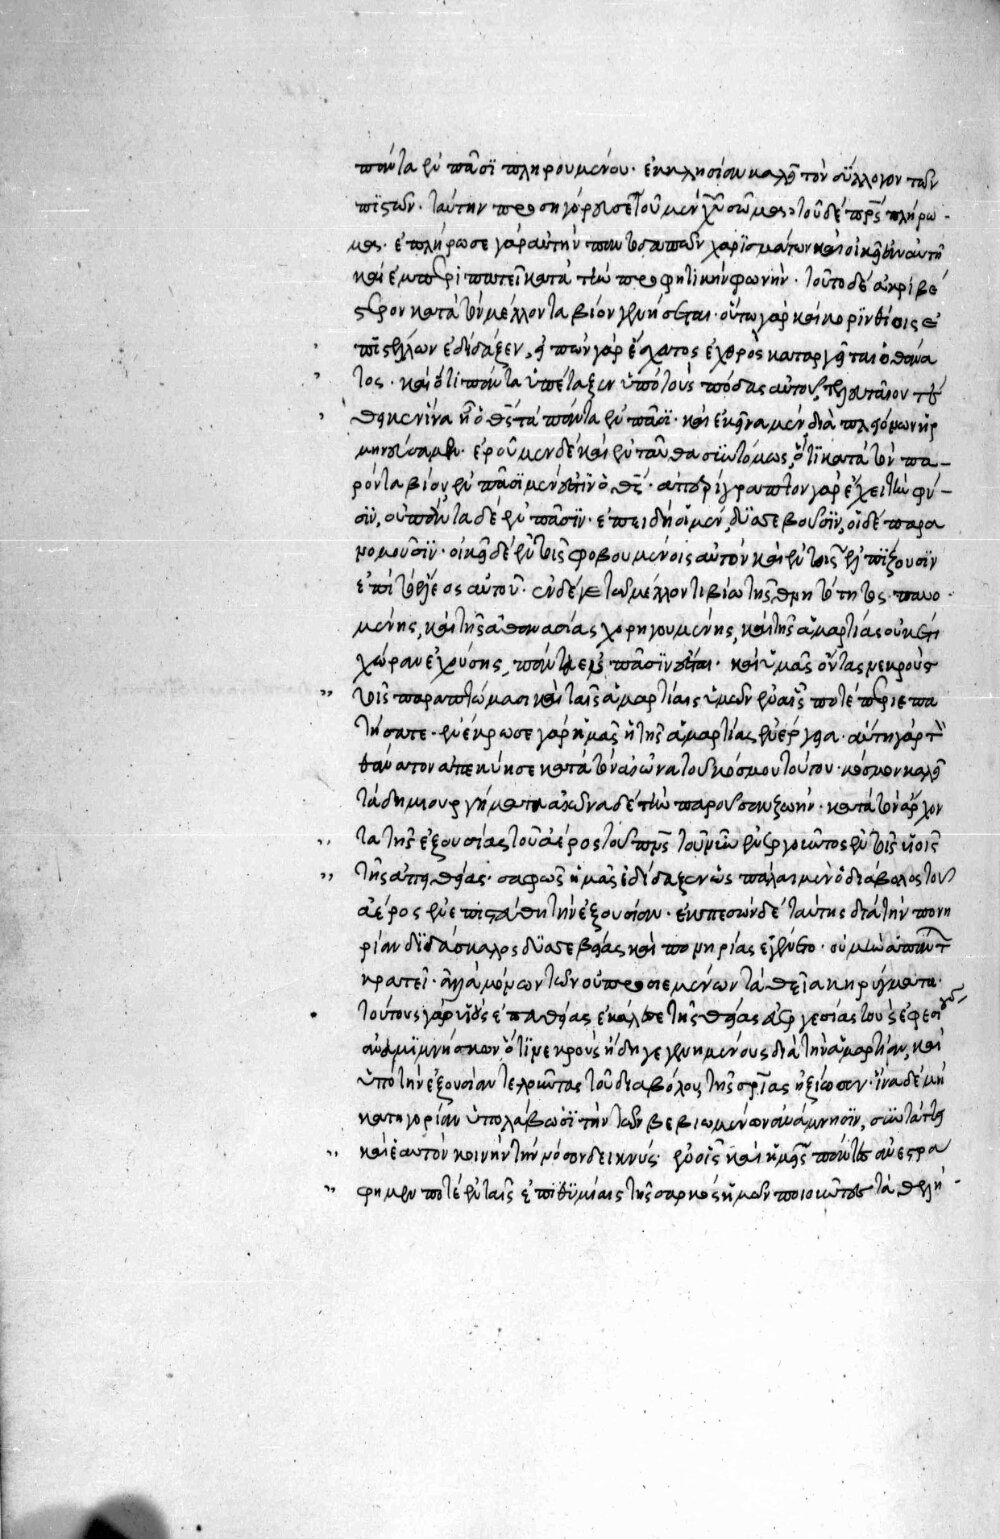 πάντα ἐν πᾶσι πληρουμένου· ἐκκλησίαν καλεῖ τὸν σύλλογον τῶν
πιστῶν· ταύτην προσηγόρευσε τοῦ μὲν χῦ σῶμα, τοῦ δὲ πρς πλήρω-
μα· ἐπλήρωσε γὰρ αὐτὴν παντοδαπῶν χαρισμάτων καὶ οἰκεῖ ἐν αὐτῇ
καὶ ἐμπεριπατεῖ κατὰ τὴν προφητικὴν φωνήν· τοῦτο δὲ ἀκριβέ
στερον κατὰ τὸν μέλλοντα βίον γενήσεται· οὕτω γὰρ καὶ κορινθίοις ἐ
πιστέλλων ἐδίδαξεν, εἰπὼν γὰρ ἔσχατος ἐχθρὸς καταργεῖται ὁ θάνα
τος· καὶ ὅτι πάντα ὑπέταξεν ὑπὸ τοὺς πόδας αὐτοῦ, τελευταῖον τέ
θεικεν ἵνα ἦ ὁ θς τὰ πάντα ἐν πᾶσι· καὶ ἐκεῖνα μὲν διὰ πλειόνων ἡρ
μηνεύσαμεν· ἐροῦμεν δὲ καὶ ἐνταῦθα συντόμως, ὅτι κατὰ τὸν πα-
ρόντα βίον, ἐν πᾶσι μέν ἐστιν ὁ θς· ἀπερίγραπτον γὰρ ἔχει τὴν φύ-
σιν, οὐ πάντα δὲ ἐν πᾶσιν· ἐπειδὴ οἱ μὲν, δυσσεβοῦσιν, οἱ δὲ παρα
νομοῦσιν· οἰκεῖ δὲ ἐν τοῖς φοβουμένοις αὐτὸν καὶ ἐν τοῖς ἐλπίζουσιν
ἐπὶ τὸ ἔλεος αὐτοῦ· ἐν δέ γε τῶ μέλλοντι βίω τῆς θνητότητος παυο
μένης, καὶ τῆς ἀθανασίας χορηγουμένης, καὶ τῆς ἁμαρτίας οὐκέτι
χώραν ἐχούσης, πάντα ἐν πᾶσιν ἔσται· καὶ ὑμᾶς ὄντας νεκροὺς
τοῖς παραπτώμασι καὶ ταῖς ἁμαρτίαις ὑμῶν ἐν αἷς ποτὲ περιεπα
τήσατε· ἐνέκρωσε γὰρ ἡμᾶς ἡ τῆς ἁμαρτίας ἐνέργεια· αὕτη γὰρ τὸν
θάνατον ἀπεκύησε κατὰ τὸν αἰῶνα τοῦ κόσμου τούτου· κόσμον καλεῖ
τὰ δημιουργήματα αἰῶνα δὲ τὴν παροῦσαν ζωήν· κατὰ τὸν ἄρχον
τα τῆς ἐξουσίας τοῦ ἀέρος τοῦ πνς τοῦ νῦν ἐνεργοῦντος ἐν τοῖς υἱοῖς
τῆς ἀπειθείας· σαφῶς ἡμᾶς ἐδίδαξεν ὡς πάλαι μὲν ὁ διάβολος τοῦ
ἀέρος ἐνεπιστεύθη τὴν ἐξουσίαν· ἐκπεσὼν δὲ ταύτης διὰ τὴν πονη
ρίαν διδάσκαλος δυσσεβείας καὶ πονηρίας ἐγένετο· οὐ μὴν ἁπάντων
κρατεῖ· ἀλλὰ μόνων τῶν οὐ προσιεμένων τὰ θεῖα κηρύγματα·
τούτους γὰρ υἱοὺς ἀπειθείας ἐκάλεσε τῆς θείας εὐεργεσίας τοὺς ἐφεσίους
ἀναμιμνήσκων, ὅτι νεκροὺς ἤδη γεγενημένους διὰ τὴν ἁμαρτίαν, καὶ
ὑπὸ τὴν ἐξουσίαν τελοῦντας τοῦ διαβόλου, τῆς σρίας ἠξίωσεν· ἵνα δὲ μὴ
κατηγορίαν ὑπολάβωσι τὴν τῶν βεβιωμένων ἀνάμνησιν, συντάττει
καὶ ἑαυτὸν κοινὴν τὴν νόσον δεικνύς· ἐν οἷς καὶ ἡμεῖς πάντες ἀνεστρά
φημεν ποτὲ ἐν ταῖς ἐπιθυμίαις τῆς σαρκὸς ἡμῶν ποιοῦντες τὰ θελή-